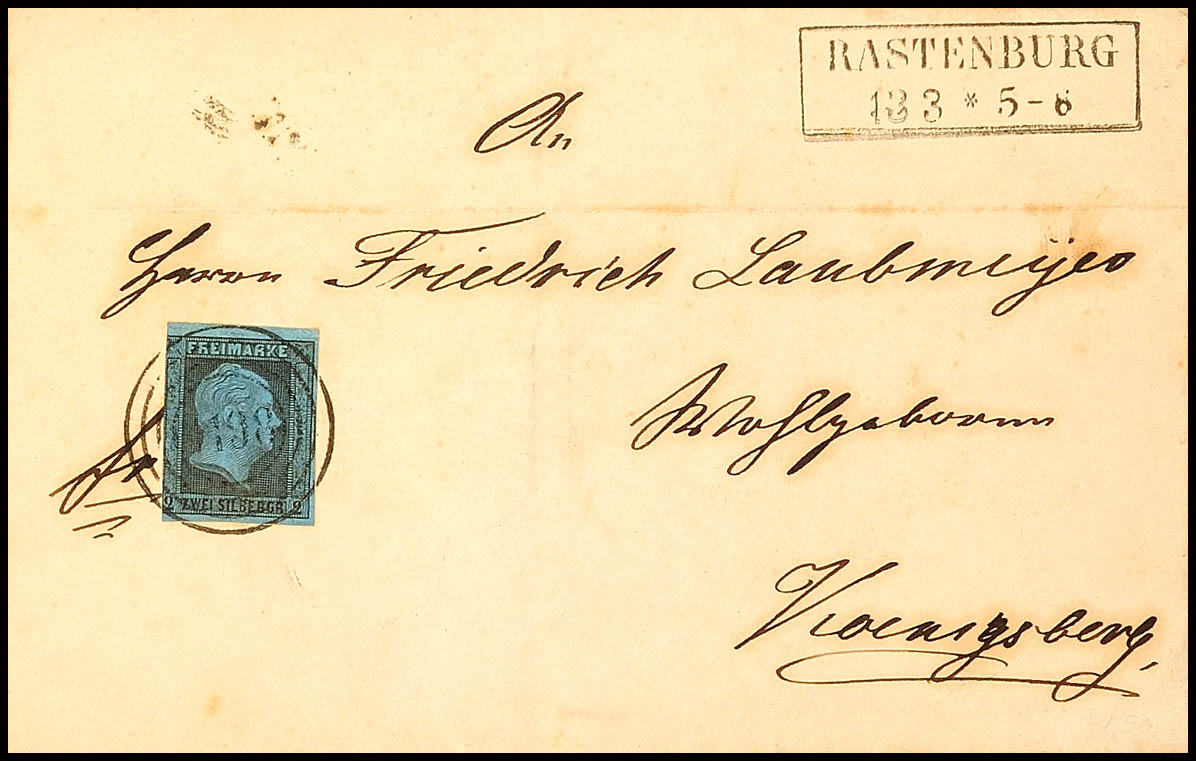 RASTENBURG
13 3 * 5-6
An
Herrn Friedrich Laubmeyer
FREIMARKE
fr
Wohlgeboren
2 ZWEI SILBERGR. 2
Koenigsberg,